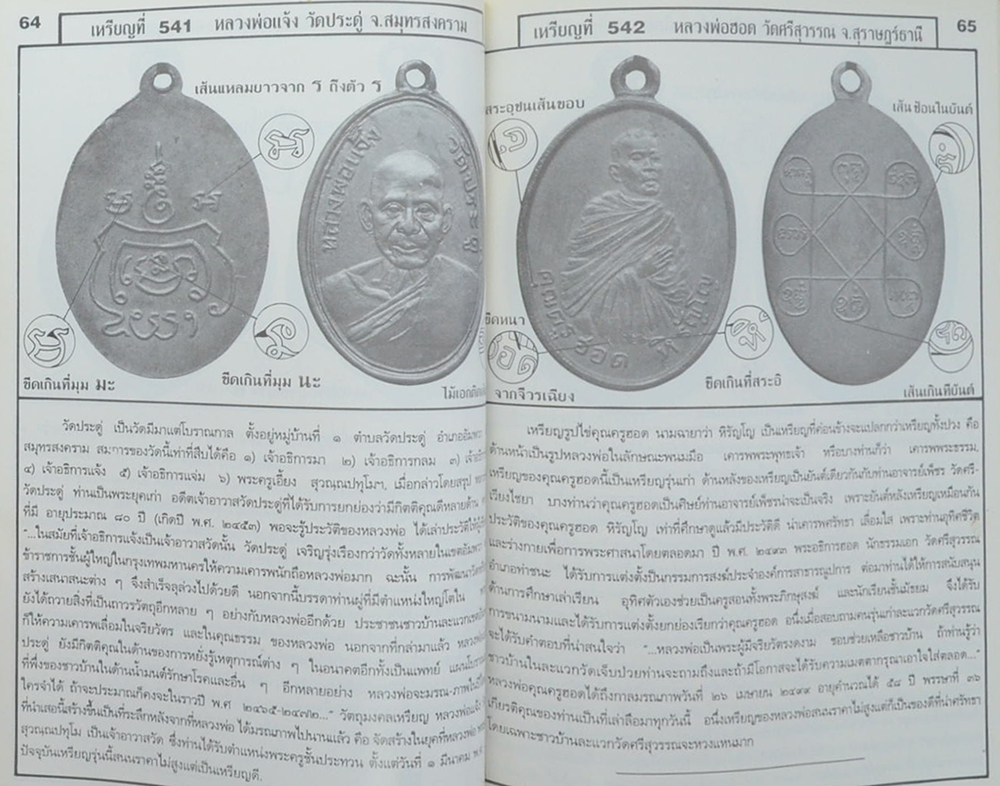 64
เหรียญที่ 541 หลวงพ่อแจ้ง วัดประดู่ จ.สมุทรสงคราม
เส้นแหลมยาวจาก ร ถึงตัว ร
หลวงพ่อแจ้ง วัดประดู่
ขีดเกินที่มุม มะ
ขีดเกินที่มุม นะ
ไม้เอกติด
วัดประดู่ เป็นวัดมีมาแต่โบราณกาล ตั้งอยู่หมู่บ้านที่ ๑ ตำบลวัดประดู่ อำเภออัมพวา
สมุทรสงคราม สมภารของวัดนี้เท่าที่สืบได้คือ ๑) เจ้าอธิการมา ๒) เจ้าอธิการกลม ๓) เจ้าอธิ
๔) เจ้าอธิการแจ้ง ๕) เจ้าอธิการแจ่ม ๖) พระครูเอี้ยง สุวณฺณปทุโมฯ. เมื่อกล่าวโดยสรุป
วัดประดู่ ท่านเป็นพระยุคเก่า อดีตเจ้าอาวาสวัดประดู่ที่ได้รับการยกย่องว่ามีกิตติคุณดีหลายด้าน
ที่มี อายุประมาณ ๘๐ ปี (เกิดปี พ.ศ. ๒๔๕๓) พอจะรู้ประวัติของหลวงพ่อ ได้เล่าประวัติให้
"...ในสมัยที่เจ้าอธิการแจ้งเป็นเจ้าอาวาสวัดนั้น วัดประดู่ เจริญรุ่งเรืองกว่าวัดทั้งหลายในเขตอัมพวา
ข้าราชการชั้นผู้ใหญ่ในกรุงเทพมหานครให้ความเคารพนับถือหลวงพ่อมาก ฉะนั้น การพัฒนาวัด
สร้างเสนาสนะต่าง ๆ จึงสำเร็จลุล่วงไปด้วยดี นอกจากนี้บรรดาท่านผู้ที่มีตำแหน่งใหญ่โตใน
ยังได้ถวายสิ่งที่เป็นถาวรวัตถุอีกหลาย ๆ อย่างกับหลวงพ่ออีกด้วย ประชาชนชาวบ้านละแวก
ก็ให้ความเคารพเลื่อมในจริยวัตร และในคุณธรรม ของหลวงพ่อ นอกจากที่กล่ามาแล้ว หลวงพ่อ
ประดู่ ยังมีกิตติคุณในด้านของการหยั่งรู้เหตุการณ์ต่าง ๆ ในอนาคตอีกทั้งเป็นแพทย์ แผนโบราณ
ที่พึ่งของชาวบ้านในด้านน้ำมนต์รักษาโรคและอื่น ๆ อีกหลายอย่าง หลวงพ่อจะมรณ-ภาพไปเมื่อ
ใครจำได้ ถ้าจะประมาณก็คงจะในราวปี พ.ศ ๒๔๖๕-๒๔๗๒..." วัตถุมงคลเหรียญ หลวงพ่อแจ้ง
ที่นำเสอนี้สร้างขึ้นเป็นที่ระลึกหลังจากที่หลวงพ่อ ได้มรณภาพไปนานแล้ว คือ จัดสร้างในยุคที่หลวงพ่อ
สุวณฺณปทุโม เป็นเจ้าอาวาสวัด ซึ่งท่านได้รับตำแหน่งพระครูชั้นประทวน ตั้งแต่วันที่ ๑ มีนาคม พ.ศ.
ปัจจุบันเหรียญรุ่นนี้สนนราคาไม่สูงแต่เป็นเหรียญดี.
เหรียญที่ 542 หลวงพ่อฮอด วัดศรีสุวรรณ จ.สุราษฎร์ธานี
65
สระอุชนเส้นขอบ
เส้นซ้อนในยันต์
คุณครู ฮอด หิรัญโญ
ขีดหนา
จากจีวรเฉียง
ขีดเกินที่สระอิ
เส้นเกินที่ยันต์
เหรียญรูปไข่คุณครูฮอด นามฉายาว่า หิรัญฺโญ เป็นเหรียญที่ค่อนข้างจะแปลกกว่าเหรียญทั้งปวง คือ
ด้านหน้าเป็นรูปหลวงพ่อในลักษณะพนมมือ เคารพพระพุทธเจ้า หรือบางท่านก็ว่า เคารพพระธรรม,
เหรียญของคุณครูฮอดนี้เป็นเหรียญรุ่นเก่า ด้านหลังของเหรียญเป็นยันต์เดียวกันกับท่านอาจารย์เพ็ชร วัดศรี-
เวียงไชยา บางท่านว่าคุณครูฮอดเป็นศิษย์ท่านอาจารย์เพ็ชรน่าจะเป็นจริง เพราะยันต์หลังเหรียญเหมือนกัน
ประวัติของคุณครูฮอด หิรัญฺโญ เท่าที่ศึกษาดูแล้วมีประวัติดี น่าเคารพศรัทธา เลื่อมใส เพราะท่านอุทิศชีวิต
และร่างกายเพื่อการพระศาสนาโดยตลอดมา ปี พ.ศ. ๒๔๙๓ พระอธิการฮอด นักธรรมเอก วัดศรีสุวรรณ
อำเภอท่าชนะ ได้รับการแต่งตั้งเป็นกรรมการสงฆ์ประจำองค์การสาธารณูปการ ต่อมาท่านได้ให้การสนับสนุน
ด้านการศึกษาเล่าเรียน อุทิศตัวเองช่วยเป็นครูสอนทั้งพระภิกษุสงฆ์ และนักเรียนชั้นมัธยม จึงได้รับ
การขนานนามและได้รับการแต่งตั้งยกย่องเรียกว่าคุณครูฮอด อนึ่งเมื่อสอบถามคนรุ่นเก่าละแวกวัดศรีสุวรรณ
จะได้รับคำตอบที่น่าสนใจว่า "...หลวงพ่อเป็นพระผู้มีจริยวัตรงดงาม ชอบช่วยเหลือชาวบ้าน ถ้าท่านรู้ว่า
ชาวบ้านในละแวกวัดเจ็บป่วยท่านจะถามถึงและถ้ามีโอกาสจะได้รับความเมตตากรุณาเอาใจใส่ตลอด..."
หลวงพ่อคุณครูฮอดได้ถึงกาลมรณภาพวันที่ ๒๖ เมษายน ๒๔๙๙ อายุคำนวณได้ ๕๘ ปี พรรษาที่ ๓๖
เกียรติคุณของท่านเป็นที่เล่าลือมาทุกวันนี้ อนึ่งเหรียญของหลวงพ่อสนนราคาไม่สูงแต่ก็เป็นของดีที่น่าศรัทธา
โดยเฉพาะชาวบ้านละแวกวัดศรีสุวรรณจะหวงแหนมาก